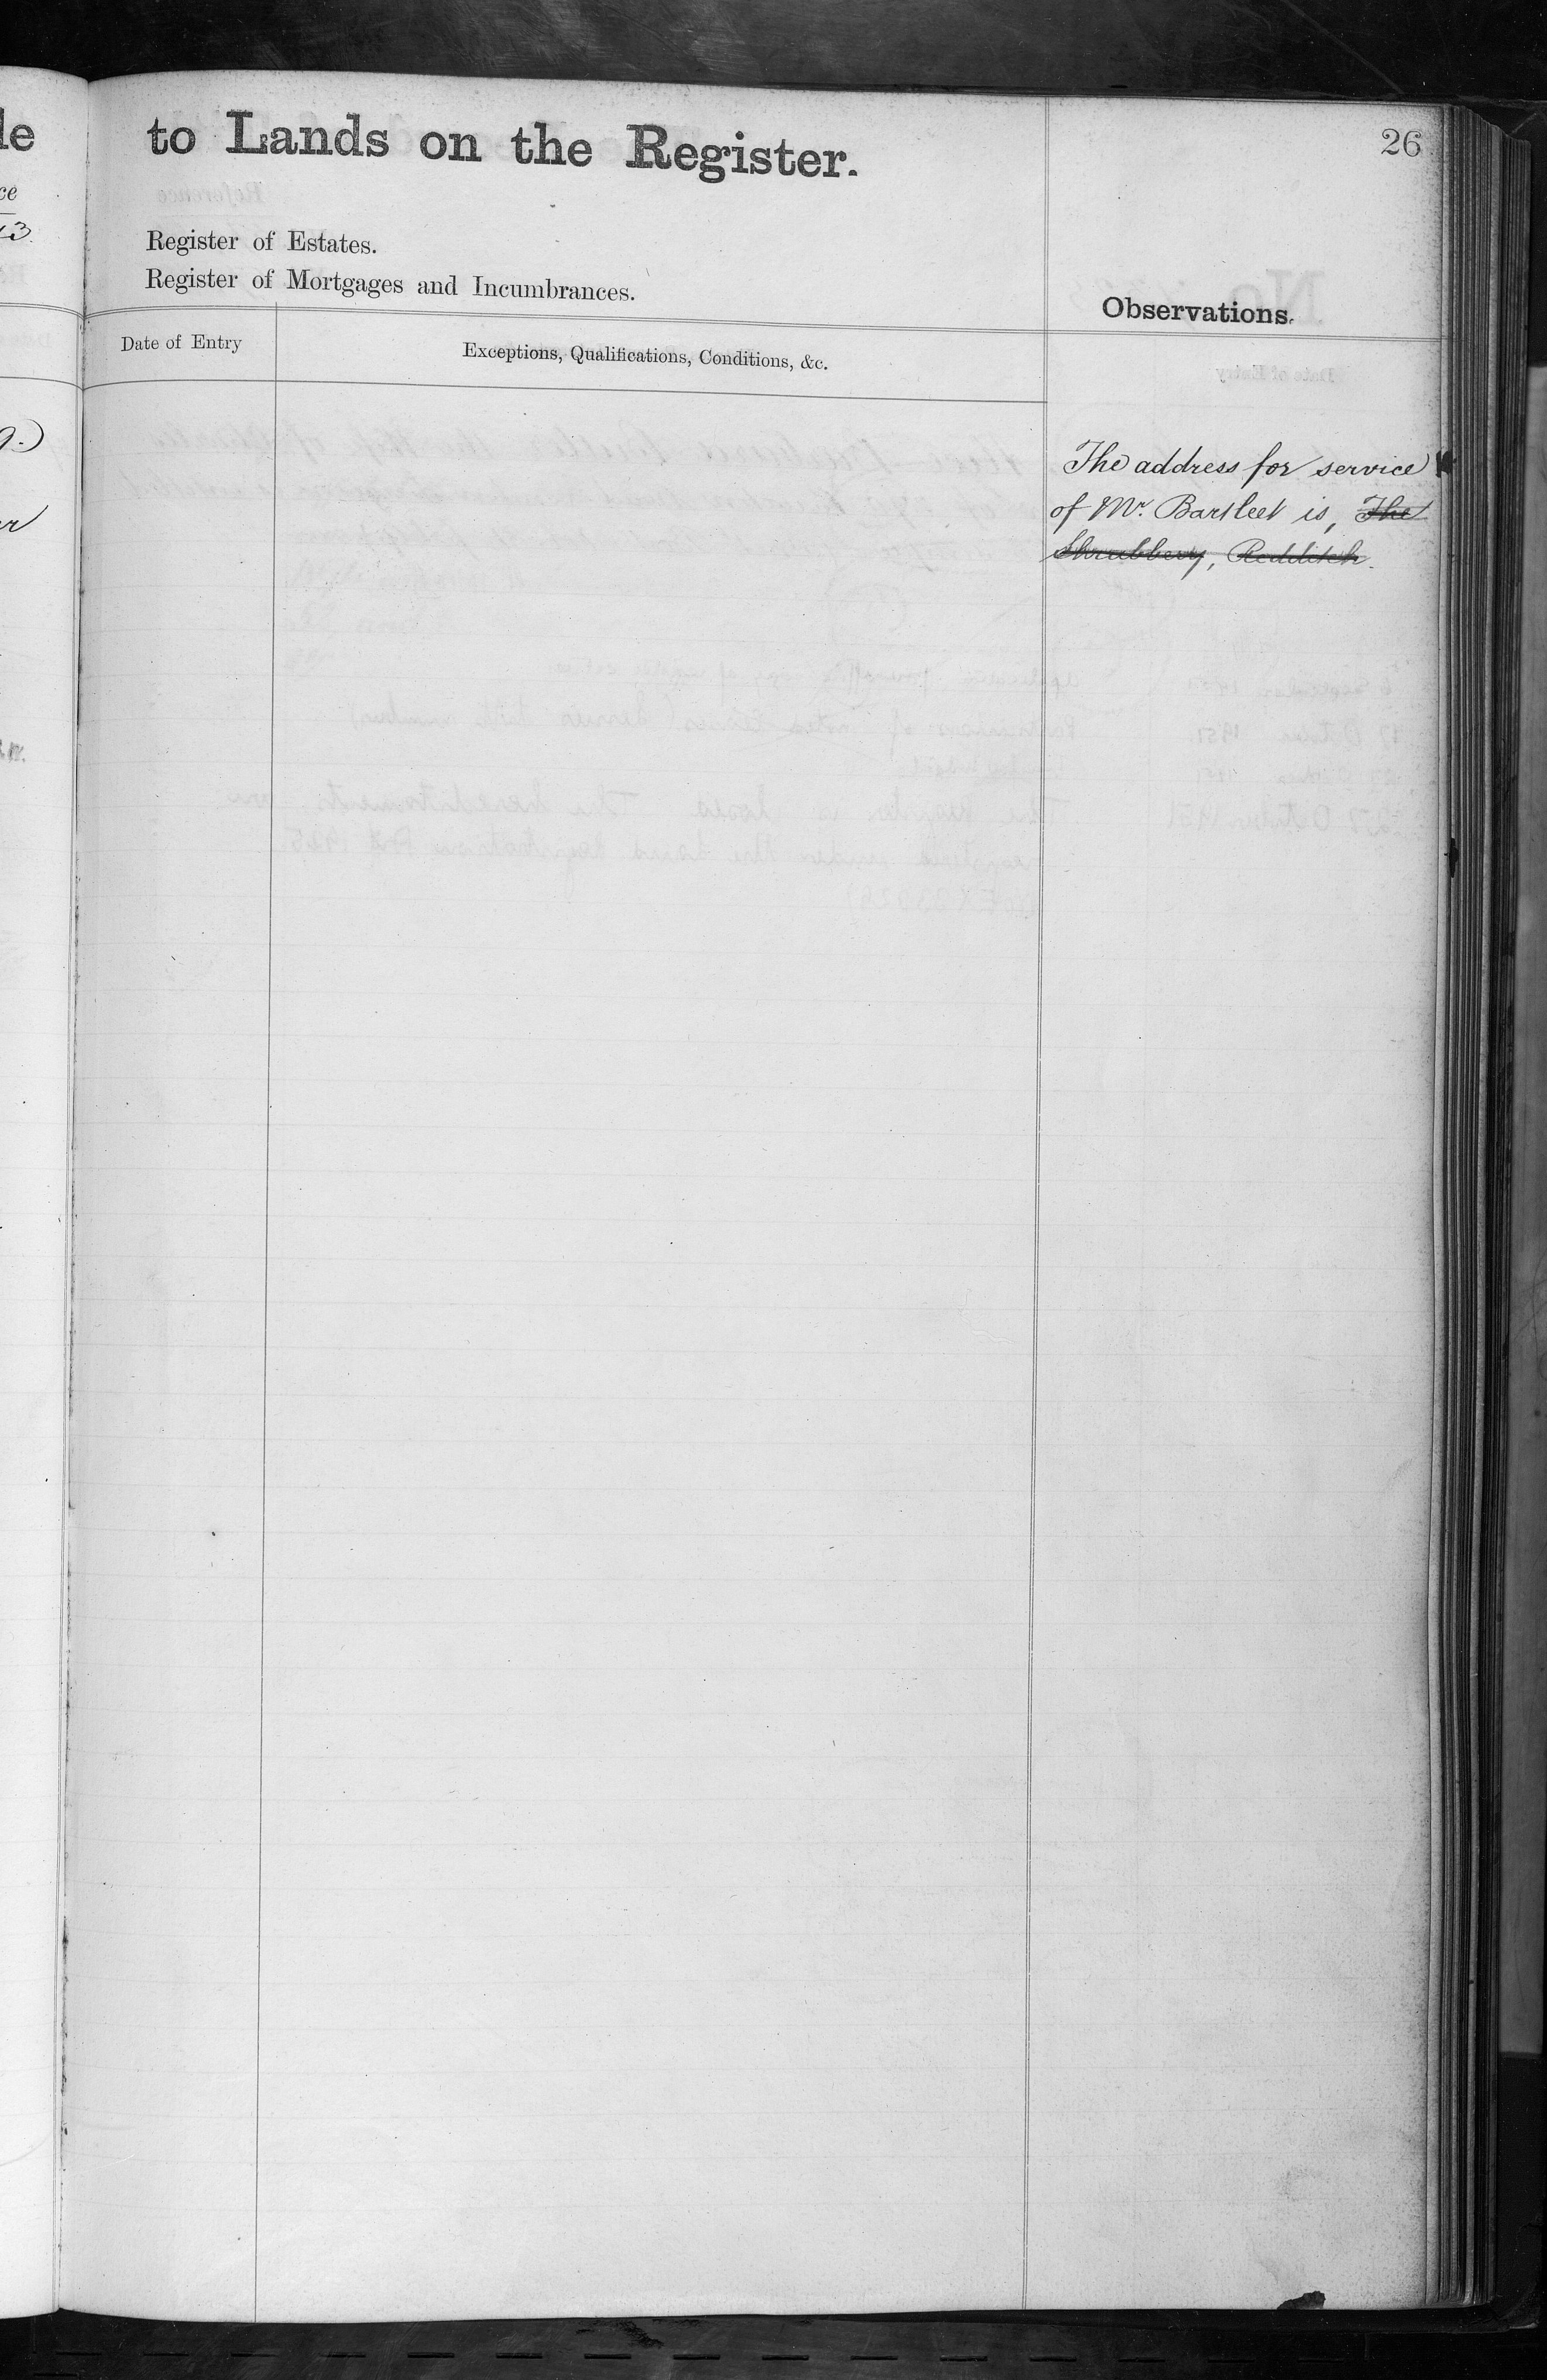 to Lands on the Register.
26
Register of Estates.
Register of Mortgages and Incumbrances.
Observations.
Date of Entry
Exceptions, Qualifications, Conditions, &c.
The address for service
of Mr. Bartleet is, The
Shrubbery, Redditch.